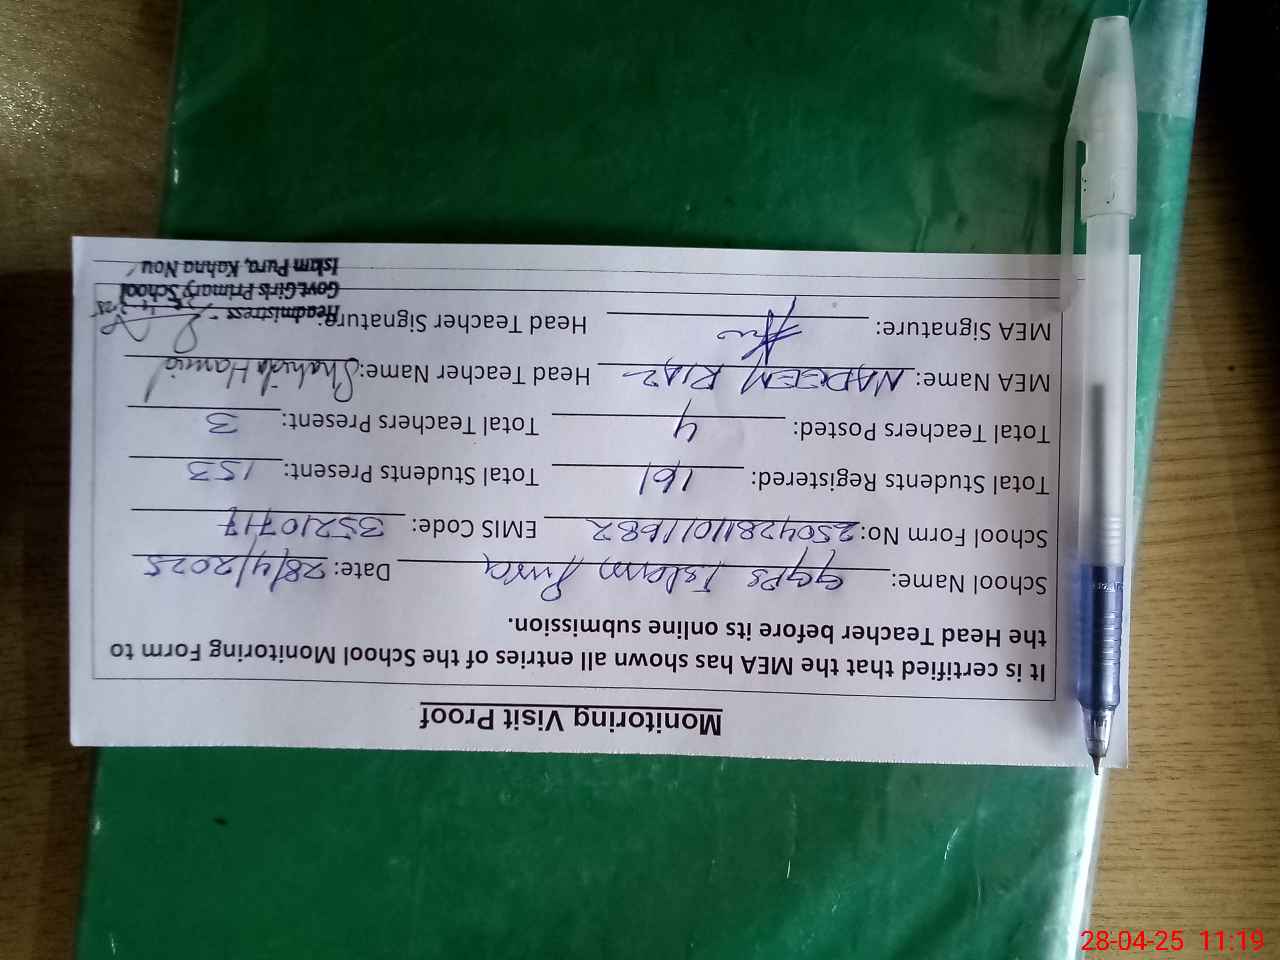 Monitoring Visit Proof
It is certified that the MEA has shown all entries of the School Monitoring Form to
the Head Teacher before its online submission.
School Name: GGPS Islam Pura Date: 28/4/2025
School Form No: 25042811011682 EMIS Code: 35210717
Total Students Registered: 161 Total Students Present: 153
Total Teachers Posted: 4 Total Teachers Present: 3
MEA Name: NADEEM RIAZ Head Teacher Name: Shahida Hamid
MEA Signature: Head Teacher Signature:
Headmistress
Govt.Girls Primary School
Islam Pura, Kahna Nou
28-04-25 11:19